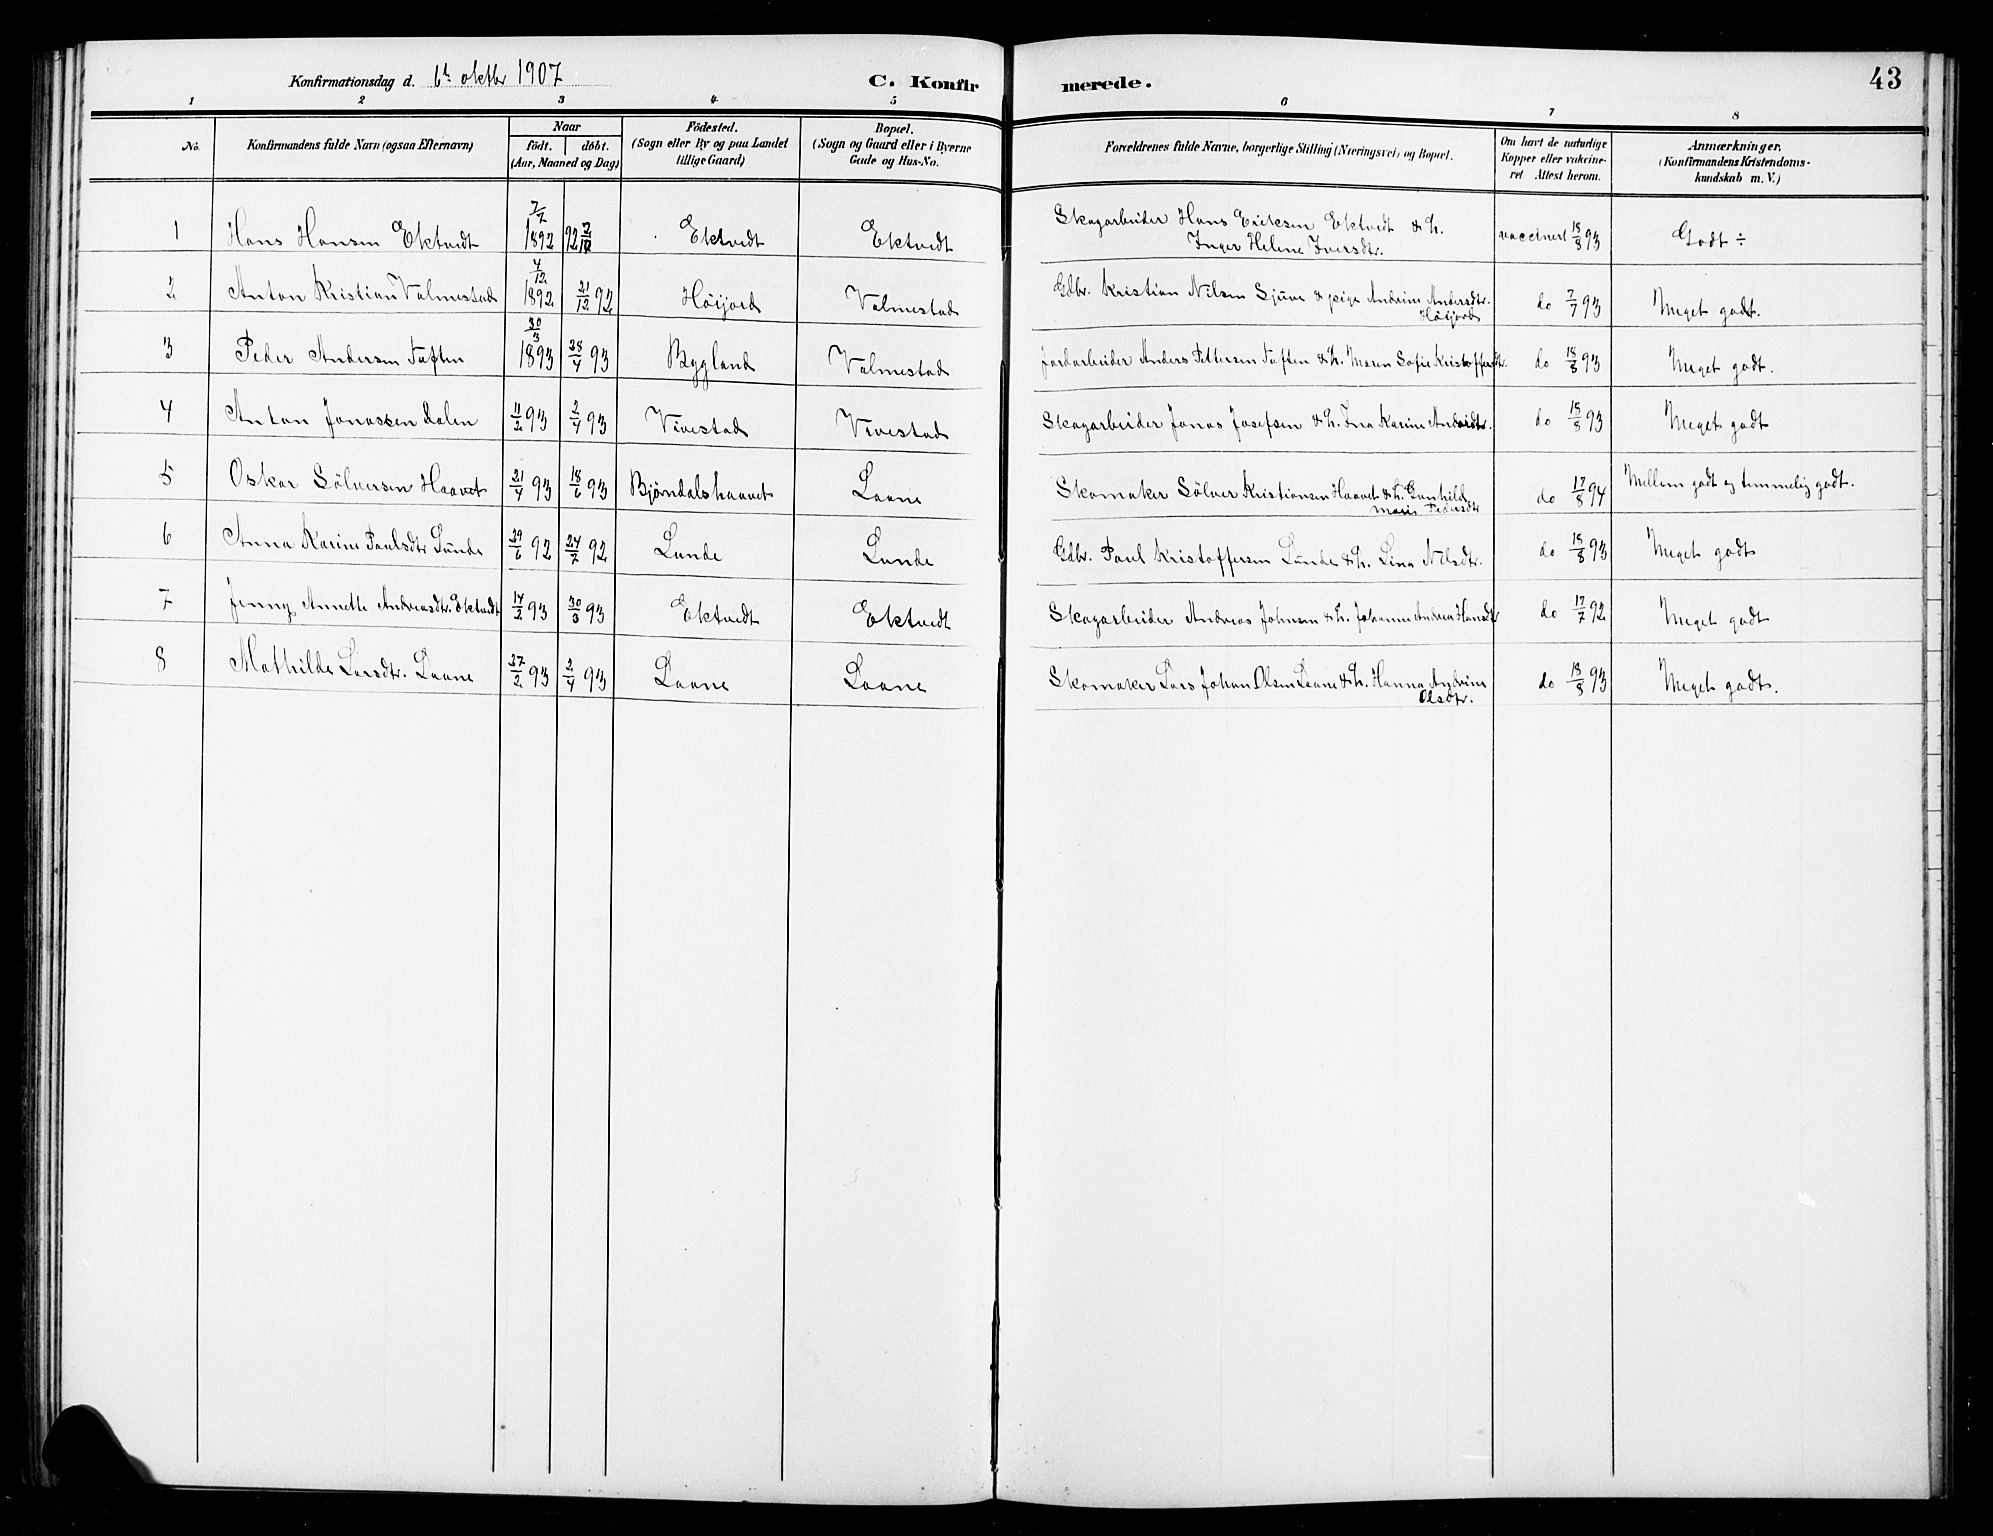 Konfirmationsdag d. 6te oktbr 1907 C. Konfirmerede. 43
1 2 3 4 5 6 7 8
No.
Konfirmandens fulde Navn (ogsaa Efternavn)
Naar
født. døbt.
(Aar, Maaned og Dag)
Fødested.
(Sogn eller By og paa Landet
tillige Gaard)
Bopæl.
(Sogn og Gaard eller i Byerne
Gade og Hus-No.
Forældrenes fulde Navne, borgerlige Stilling (Næringsvei) og Bopæl.
Om havt de naturlige
Kopper eller vakcine-
ret Attest herom.
Anmærkninger.
(Konfirmandens Kristendoms-
kundskab m. V.)
1 Hans Hansen Ektvedt 7/7 1892 92 2/12 Ektvedt Ektvedt Skogarbeider Hans Eriksen Ektvedt & h. vaccinert 18/8 93 Godt ÷
Inger Helene Iversdtr.
2 Anton Kristian Valmestad 4/12 1892 21/12 92 Höijord Valmestad Gdbr. Kristian Nilsen Sjuve & pige Andrine Andersdtr. do 7/7 93 Meget godt.
Höijord
3 Peder Andersen Tuften 30/3 1893 /4 93 Bygland Valmestad Jordarbeider Anders Pettersen Tuften & h. Maren Sofie Kristoffersdtr. do 18/8 93 Meget godt.
4 Anton Jonassen Dalen 11/2 93 2/4 93 Vivestad Vivestad Skogarbeider Jonas Josefsen & h. Ina Karine do 18/8 93 Meget godt
5 Oskar Sölversen Haavet 21/4 93 18/6 93 Bjørndalshaavet Laane Skomaker Sölver Kristiansen Haavet & h. Gunhild do 17/8 94 Mellem godt og temmelig godt.
Marie Pedersdtr
6 Anna Karine Paulsdtr Lunde 29/6 92 24/7 92 Lunde Lunde Gdbr. Paul Kristoffersen Lunde & h. Lina Nilsdtr. do 18/8 93 Meget godt
7 Jenny Annette Andreasdtr. Ektvedt 14/2 93 30/3 93 Ektvedt Ektvedt Skogarbeider Andreas Johnsen & h. Johanne Andrea Hansdtr do 17/7 92 Meget godt
8 Mathilde Larsdtr. Laane 27/2 93 2/4 93 Laane Laane Skomaker Lars Johan Olsen Laane & h. Hanna Andrine do 18/8 93 Meget godt.
Olsdtr.